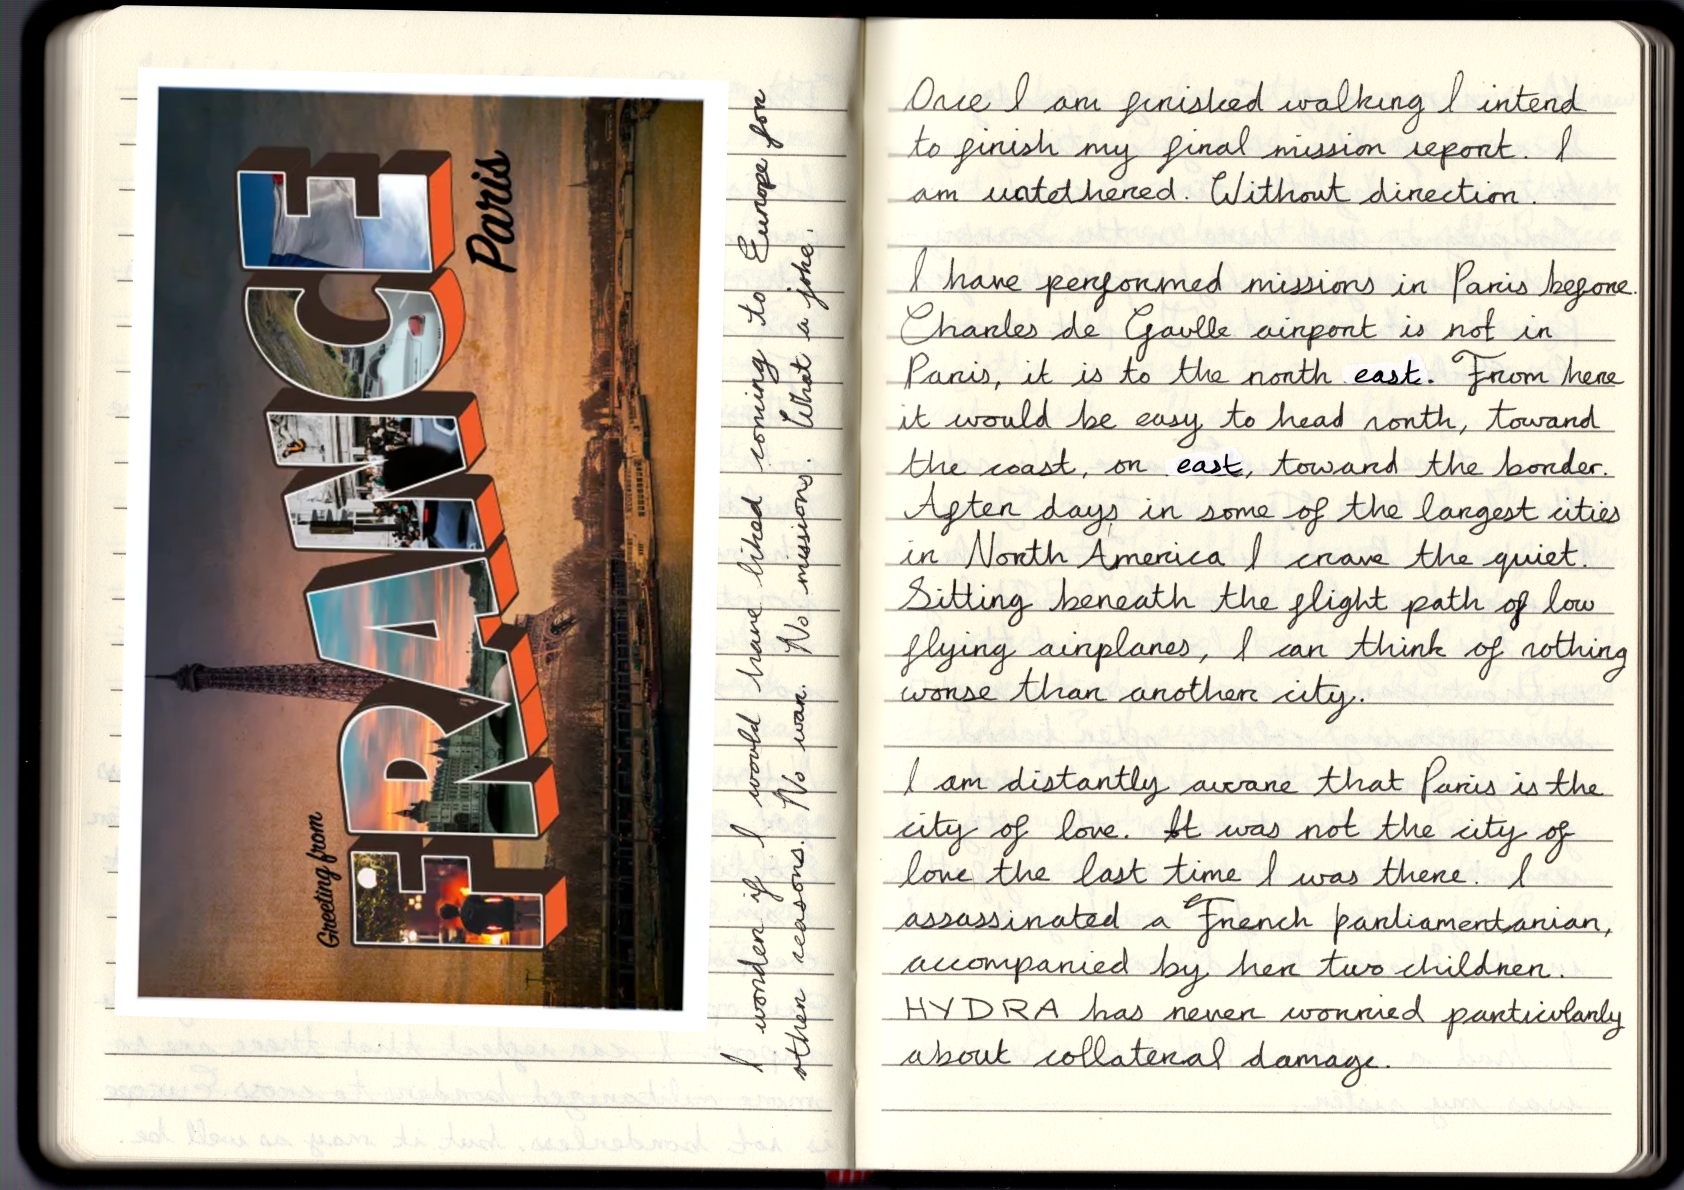 Greeting from
FRANCE
Paris
I wonder if I would have liked coming to Europe for
other reasons. No war. No missions. What a joke.
Once I am finished walking I intend
to finish my final mission report. I
am untethered. Without direction.
I have performed missions in Paris before.
Charles de Gaulle airport is not in
Paris, it is to the north east. From here
it would be easy to head north, toward
the coast, or east, toward the border.
After days in some of the largest cities
in North America I crave the quiet.
Sitting beneath the flight path of low
flying airplanes, I can think of nothing
worse than another city.
I am distantly aware that Paris is the
city of love. It was not the city of
love the last time I was there. I
assassinated a French parliamentarian,
accompanied by her two children.
HYDRA has never worried particularly
about collateral damage.